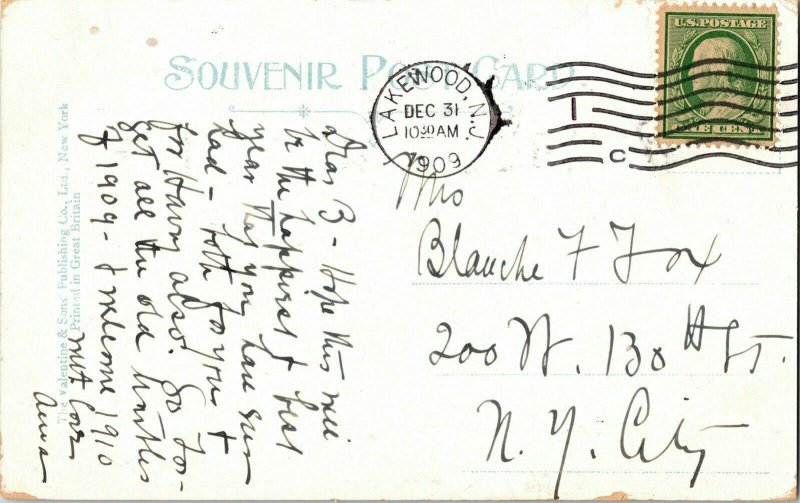 SOUVENIR POST CARD
U.S. POSTAGE
ONE CENT
LAKEWOOD, N.J.
DEC 31
10 30 AM
1909
1
C
The Valentine & Sons' Publishing Co., Ltd., New York
Printed in Great Britain
Dear B - Hope this will
be the happiest & best
year that you have ever
had - both for you &
for Harry also. So for-
get all the old
of 1909 - & welcome 1910
with love
Anna
Mrs
Blanche F Fox
200 W. 130th St.
N. Y. City